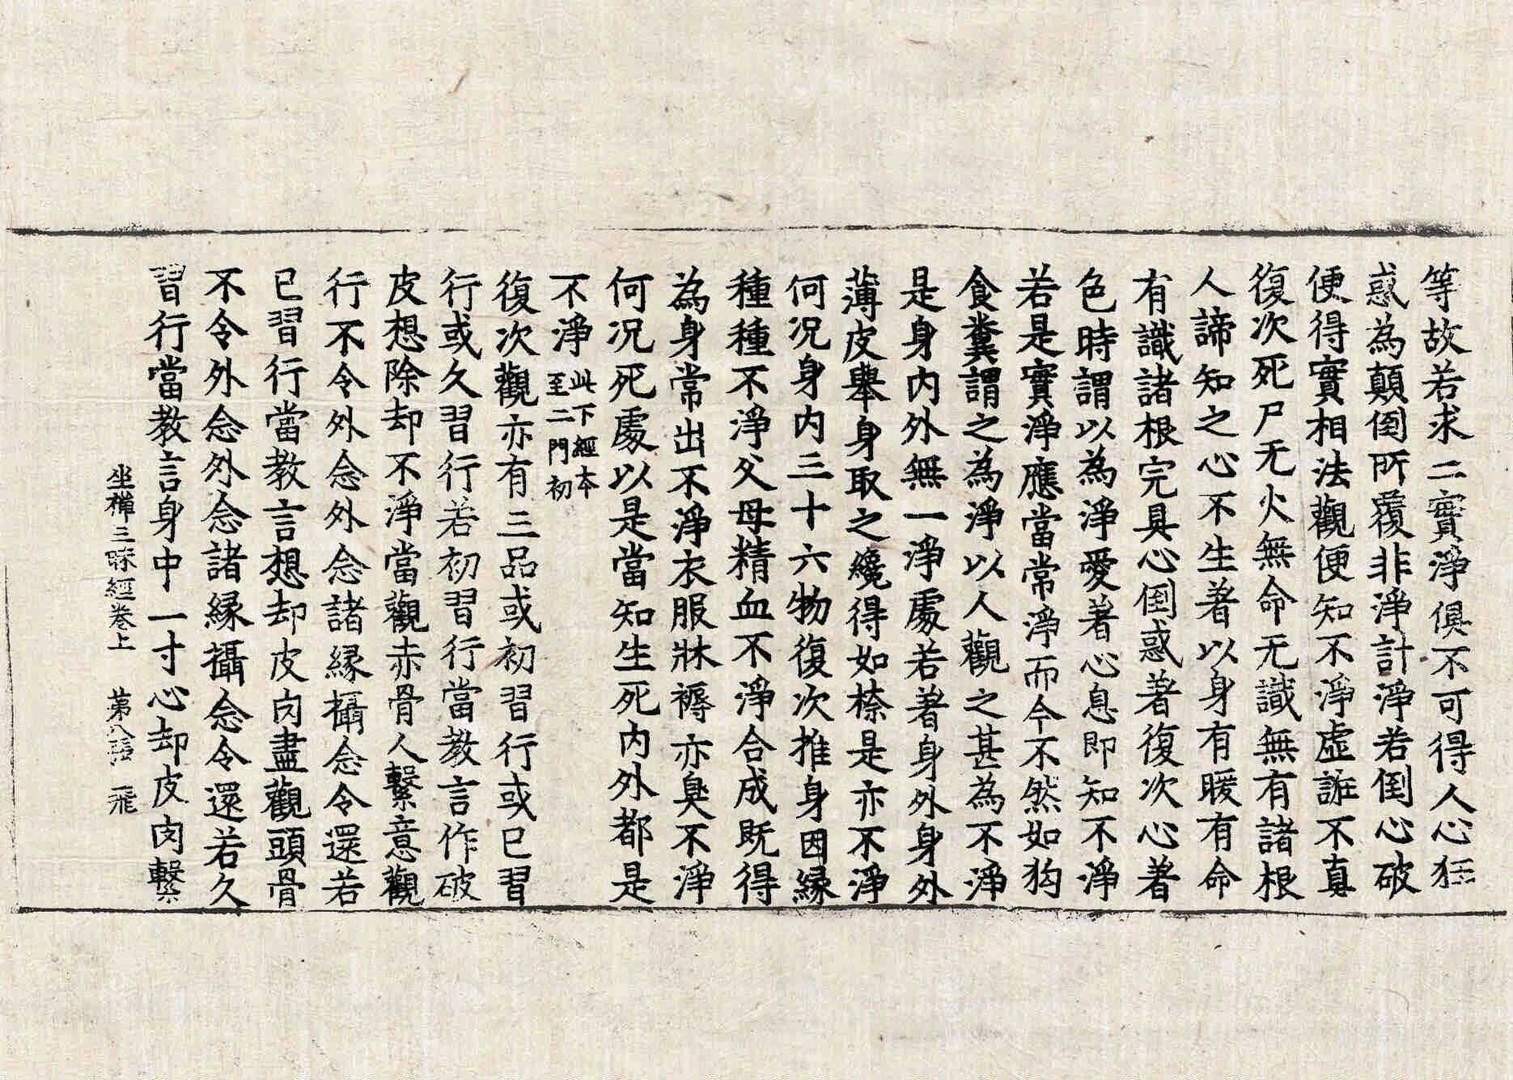 等故若求二實淨俱不可得人心狂
惑為顛倒所覆非淨計淨若倒心破
便得實相法觀便知不淨虛誑不真
復次死尸无火無命无識無有諸根
人諦知之心不生著以身有暖有命
有識諸根完具心倒惑著復次心著
色時謂以為淨愛著心息即知不淨
若是實淨應當常淨而今不然如狗
食糞謂之為淨以人觀之甚為不淨
是身內外無一淨處若著身外身外
薄皮舉身取之纔得如㮈是亦不淨
何況身內三十六物復次推身因緣
種種不淨父母精血不淨合成既得
為身常出不淨衣服牀褥亦臭不淨
何況死處以是當知生死內外都是
不淨 此下經本
至二門初
復次觀亦有三品或初習行或已習
行或久習行若初習行當教言作破
皮想除却不淨當觀赤骨人繫意觀
行不令外念外念諸緣攝念令還若
已習行當教言想却皮肉盡觀頭骨
不令外念外念諸緣攝念令還若久
習行當教言身中一寸心却皮肉繫
坐禪三昧經卷上 第八張 飛